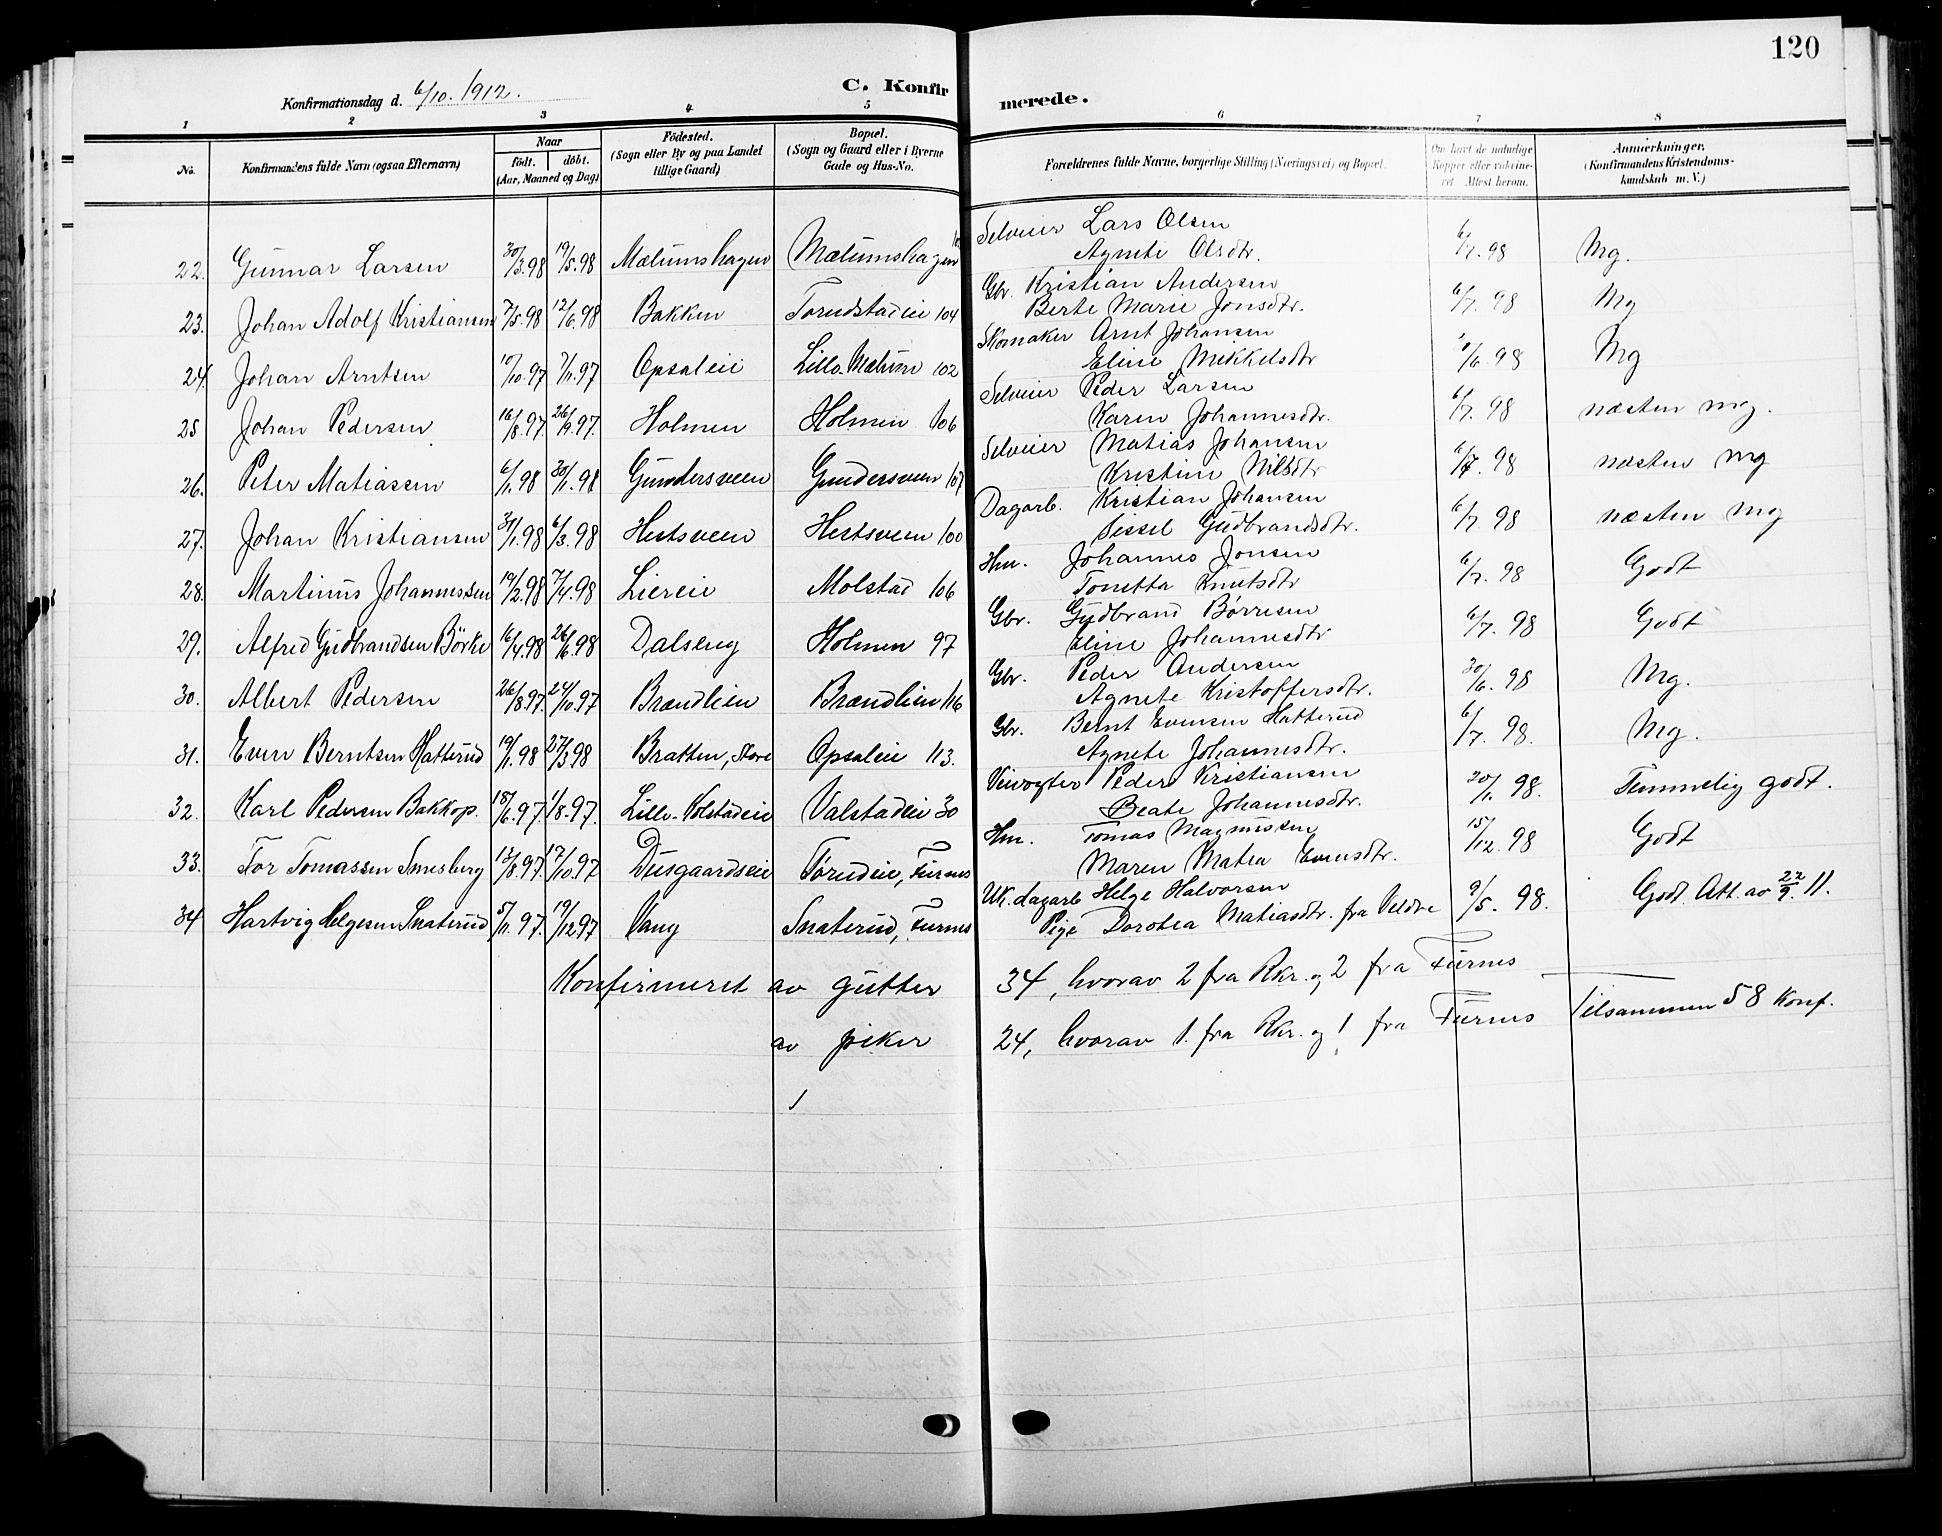 120
Konfirmationsdag d. 6/10. 1912.
C. Konfirmerede.
1 2 3 4 5 6 7 8
No.
Konfirmandens fulde Navn (ogsaa Efternavn)
Naar
födt. döbt.
(Aar, Maaned og Dag)
Födested.
(Sogn eller By og paa Landet
tillige Gaard)
Bopæl.
(Sogn og Gaard eller i Byerne
Gade og Hus-No.
Forældrenes fulde Navne, borgerlige Stilling (Næringsvei) og Bopæl.
Om havt de naturlige
Kopper eller vaccine-
ret. Attest herom.
Anmærkninger.
(Konfirmandens Kristendoms-
kundskab m. V.)
22. Gunnar Larsen 30/3.98 19/5.98 Mælumshagen Mælumshagen Selveier Lars Olsen 6/7.98 Mg.
Agnete Olsdtr.
23. Johan Adolf Kristiansen 7/5.98 12/6.98 Bakken Torudstadeie 104 Gbr. Kristian Andersen 6/7.98 Mg
Berte Marie Jonsdtr.
24. Johan Arntsen 10/10.97 7/11.97 Opsaleie Lille Mælum 102 Skomaker Arnt Johansen 98 Mg
Eline Mikkelsdtr
25 Johan Pedersen 16/8.97. 26/9.97. Holmen Holmen 106 Selveier Peder Larsen 6/7.98 næsten mg.
Karen Johannesdtr.
26. Peter Matiassen 6/1.98 30/1.98 Gundersveen Gundersveen 107 Selveier Matias Johansen 6/7.98 næsten mg
Kristine Nilsdtr
27. Johan Kristiansen 31/1.98 6/3.98 Hestsveen Hestsveen 100 Dagarb. Kristian Johansen 6/7.98 næsten mg
Sissel Gudbrandsdtr.
28. Martinus Johannessen 19/2.98 7/4.98 Liereie Molstad 106 Hm. Johannes Jonsen 6/7.98 Godt
Tonetta Knutsdtr
29. Alfred Gudbrandsen Börke 16/4.98 26/6.98 Dalseng Holmen 97 Gbr. Gudbrand Börresen 6/7.98 Godt
Eline Johannesdtr
30. Albert Pedersen 26/8.97. 24/10.97 Brændlien Brændlien 116 Gbr. Peder Andersen 30/6.98 Mg.
Agnete Kristoffersdtr.
31. Even Berntsen Hatterud 19/1.98 27/3.98 Bratten, Store Opsaleie 113. Gbr. Bernt Evensen Hatterud 6/7.98. Mg.
Agnete Johannesdtr.
32. Karl Pedersen Bakkop. 18/6.97. 1/8.97. Lille-Kolstadeie Valstadeie 30 Veivogter Peder Kristiansen 20/1.98. Temmelig godt.
Beate Johannesdtr.
33. Tor Tomassen Smesberg 12/8.97. 17/10.97 Diesgaardseie Törudeie, Furnes Hm. Tomas Magnussen 15/12.98 Godt
Maren Matea Evensdtr.
34 Hartvig Helgesen Snaterud 5/11.97. 19/12.97 Vang Snaterud, Furnes UK. dagarb Helge Halvorsen 9/5.98. Godt. Att. av 22/9.11.
Pige Dorotea Matiasdtr. fra Veldre
Konfirmeret av gutter 34, hvorav 2 fra Rkr. og 2 fra Furnes
av piker 24, hvorav 1. fra Rkr. og 1 fra Furnes Tilsammen 58 Konf.